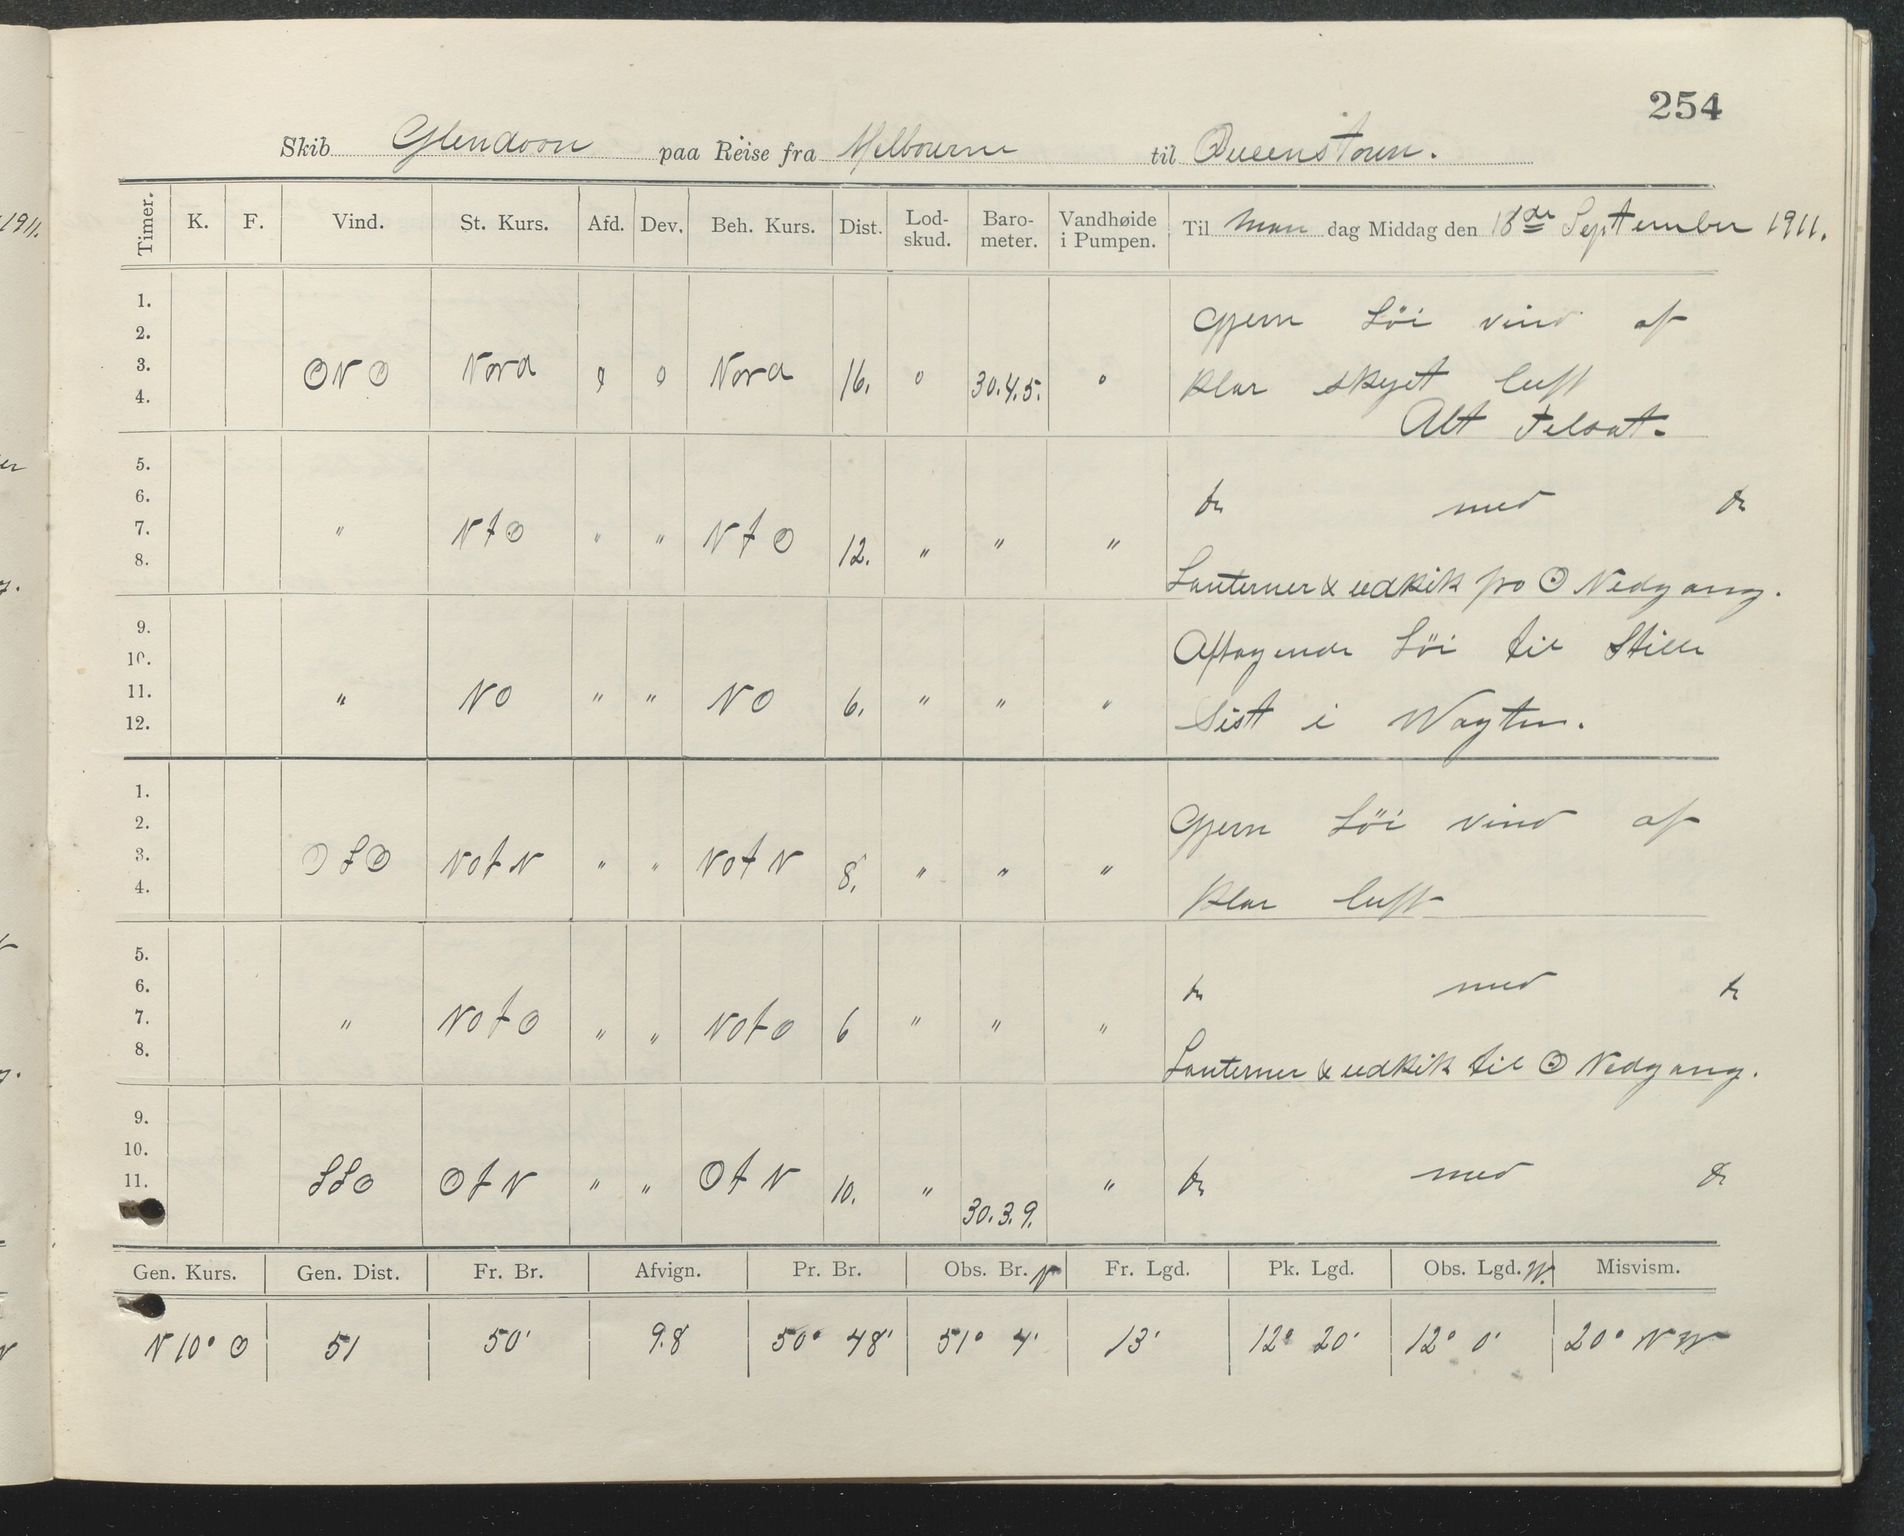 254
Skib Glendoon paa Reise fra Melbourne til Queenstoun.
Timer. K. F. Vind. St. Kurs. Afd. Dev. Beh. Kurs. Dist. Lod-skud. Baro-meter. Vandhøide i Pumpen. Til Man dag Middag den 18de September 1911.
1. Gjern Löi vind af
2.
3. ONO Nord 0 0 Nord 16. 0 30.4.5. 0 klar skyet luft
4. Alt Velont.
5.
6. do med do
7. " NtO " " NtO 12. " " "
8. Lanterner & udkik fra ⊙ Nedgang.
9. Aftagende Löi til Stille
10.
11. " NO " " NO 6. " " " Sist i Wagten.
12.
1. Gjern Löi vind af
2.
3. OSO NOtN " " NOtN 8. " " "
4. klar luft
5.
6. do med do
7. " NOtO " " NOtO 6 " " "
8. Lanterner & udkik til ⊙ Nedgang.
9.
10.
11. SSO OtN " " OtN 10. " 30.3.9. " do med do
Gen. Kurs. Gen. Dist. Fr. Br. Afvign. Pr. Br. Obs. Br. N Fr. Lgd. Pk. Lgd. Obs. Lgd. W. Misvism.
N 10° O 51 50' 9.8 50° 48' 51° 4' 13' 12° 20' 12° 0' 20° NW
1911.